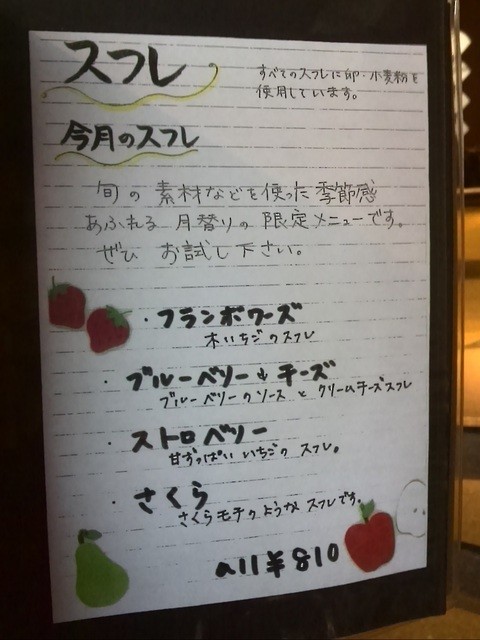 スフレ
すべてのスフレに卵・小麦粉を
使用しています。
今月のスフレ
旬の素材などを使った季節感
あふれる月替りの限定メニューです。
ぜひ お試し下さい。
・フランボワーズ
木いちごのスフレ
・ブルーベリー&チーズ
ブルーベリーのソースとクリームチーズスフレ
・ストロベリー
甘ずっぱいいちごのスフレ。
・さくら
さくらモチのようなスフレです。
all ¥810